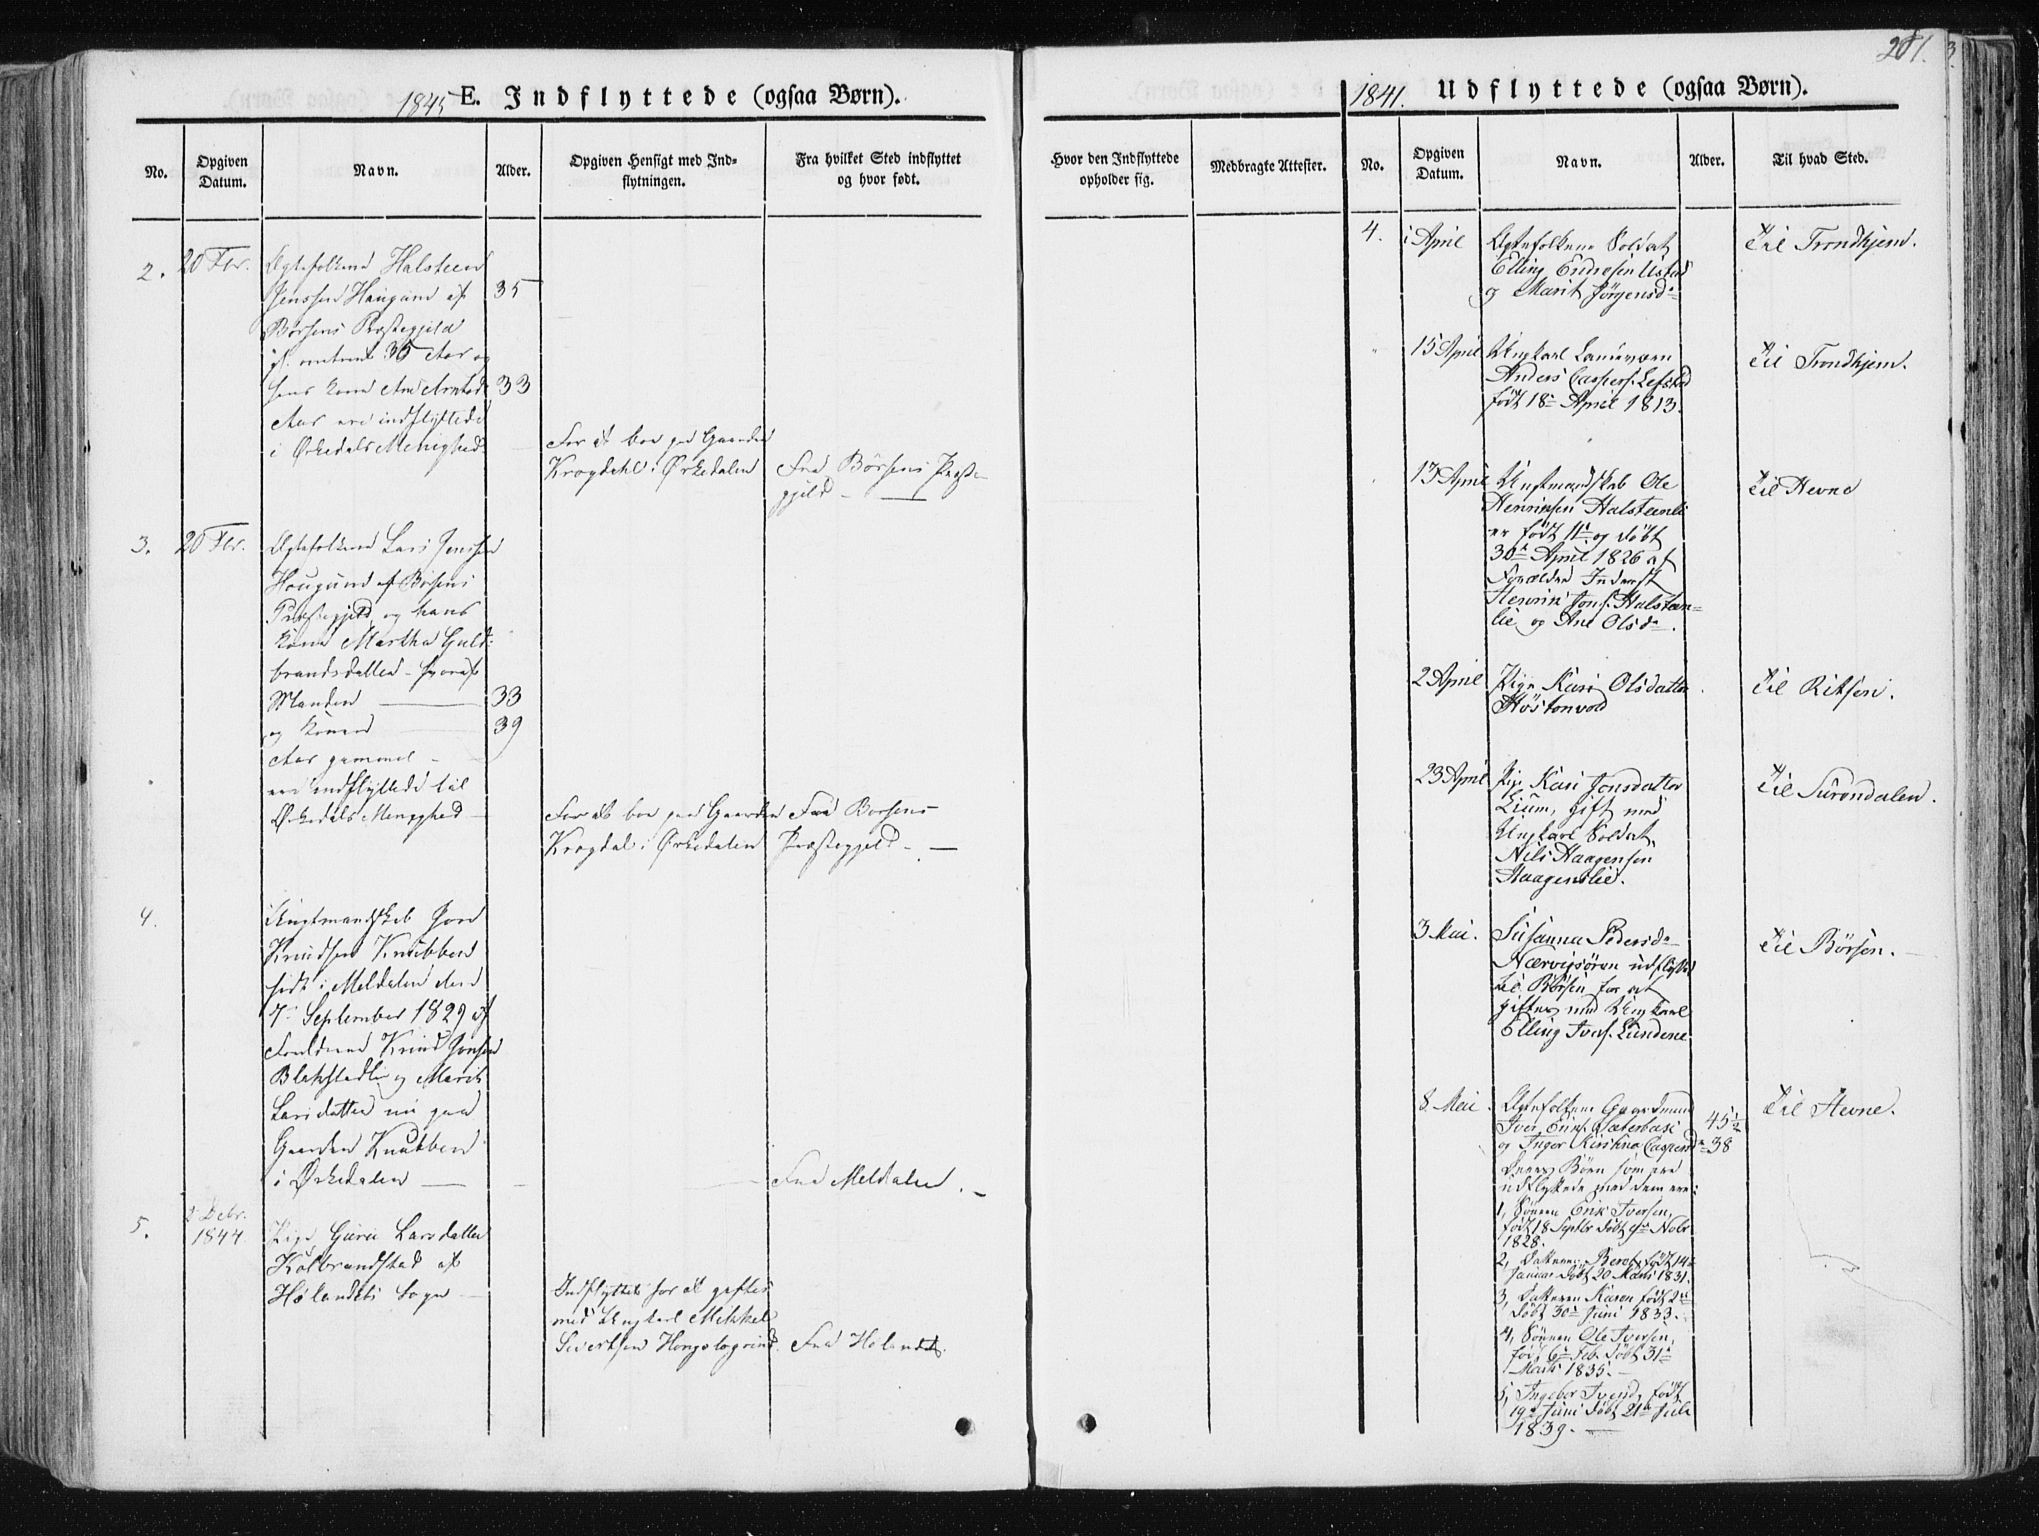 201.
1845 E. Indflyttede (ogsaa Børn).
No.
Opgiven Datum.
Navn.
Alder.
Opgiven Hensigt med Ind-
flytningen.
Fra hvilket Sted indflyttet
og hvor født.
2.
20 Fbr.
Ægtefolkene Halsteen
Jenssen Haugund af 35
Børsens Præstegjeld
omtrent 35 Aar og
hans Kone 33
Aar ere indflyttede
i Ørkedals Menighed
For at boe paa Gaarden
Krogdahl i Ørkedalen
Fra Børsens Præste-
gjeld
3.
20 Fbr.
Ægtefolkene Lars Jenssen
Haugund af Børsens
Præstegjeld og hans
Kone Martha Guld-
brandsdatter - hvoraf
Manden 33
og Konen 39
Aar gammel
ere indflyttede til
Ørkedals Menighed
For at boe paa Gaarden
Krogdal i Ørkedalen
Fra Børsens
Præstegjeld
4.
Ungtmandskab
Knudsen Knubben
født i Meldalen den
7de September 1829 af
Forældrene Knud Jonsen
Blakstadli og Marit
Larsdatter nu paa
Gaarden Knubben
i Ørkedalen
Fra Meldalen.
5.
2 Debr.
1844
Pige Guru Larsdatter
Kolbrandstad af
Hølandets Sogn
Indflyttet for at giftes
med Ungkarl Mikkel
Sivertsen
Fra Hølandet.
1841. Udflyttede (ogsaa Børn).
Hvor den Indflyttede
opholder sig.
Medbragte Attester.
No.
Opgiven
Datum.
Navn.
Alder.
Til hvad Sted.
4.
1 April
Ægtefolkene Soldat
Elling Endresen Ustad
og Marit Jørgensd.
til Trondhjem.
15 April
Ungkarl Landeværn
Anders Caspers. Lefstad
født 18de April 1813.
til Trondhjem.
13 April
Ungtmandskab Ole
Henriksen Halsteenli
er født 11te og døbt
30te April 1826 af
Forældre Inderst
Henrik Jons. Halsteen-
lie og Ane Olsd.
til Hevne
2 April
Pige Kari Olsdatter
Høstonvold
til Ritsen.
23 April
Pige Kari Jonsdatter
Lium, gift med
Ungkarl Soldat
Nils Haagensen
Haagenslie.
til Surendalen.
3 Mai.
Susanna Pedersd.
Nærvigsøren udflyttet
til Børsen for at
giftes med Ungkarl
Elling Ivers. Lundene
til Børsen.
8 Mai.
Ægtefolkene Gaardmand
Iver Eriks. Sæterbakk 45½
og Inger Kirstina Caspersd. 38
deres Børn som ere
udflyttede med dem ere:
1, Sønnen Erik Iversen,
født 18 Septbr døbt 9de Nobr
1828.
2, Datteren Beret, født 14de
Januar døbt 20 Marts 1831.
3, Datteren Karen født 2den
døbt 30te Juni 1833.
4, Sønnen Ole Iversen,
født 6te Feb. døbt 31te
Marts 1835.
5, Ingebor Iversd. født
19de Juni døbt 21de Juli
1839.
til Hevne.